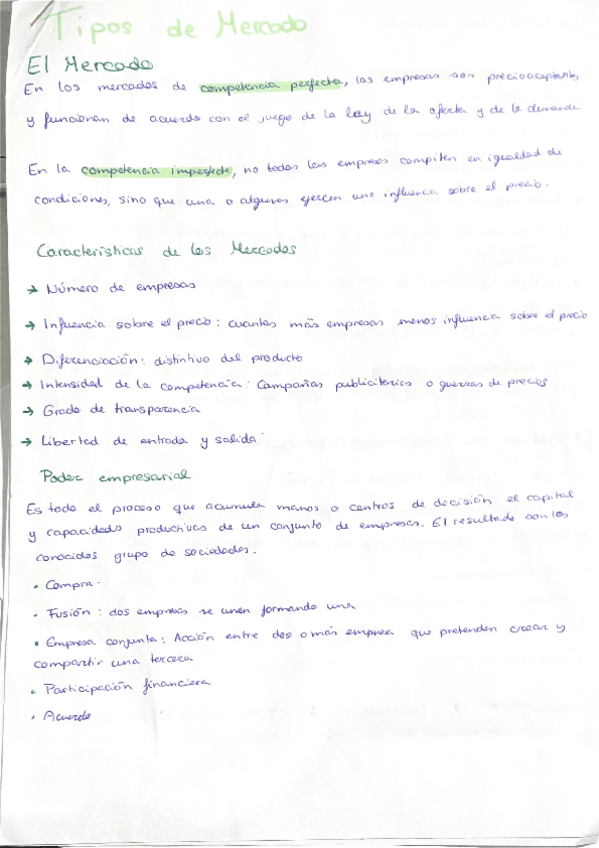 Tipos de Mercado
El Mercado
En los mercados de competencia perfecta, las empresas son precioaceptantes
y funcionan de acuerdo con el juego de la ley de la oferta y de la demanda
En la competencia imperfecta, no todas las empresas compiten en igualdad de
condiciones, sino que una o algunas ejercen una influencia sobre el precio.
Características de los Mercados
→ Número de empresas
→ Influencia sobre el precio: cuantas más empresas menos influencia sobre el precio
→ Diferenciación: distintivo del producto
→ Intensidad de la competencia: Campañas publiciterias o guerras de precios
→ Grado de transparencia
→ Libertad de entrada y salida
Poder empresarial
Es todo el proceso que acumula manos o centros de decisión el capital
y capacidades productivas de un conjunto de empresas. El resultado son los
conocidos grupo de sociedades.
• Compra.
• Fusión: dos empresas se unen formando una
• Empresa conjunta: Acción entre dos o más empresa que pretenden crear y
compartir una tercera
• Participación financiera
• Acuerdo